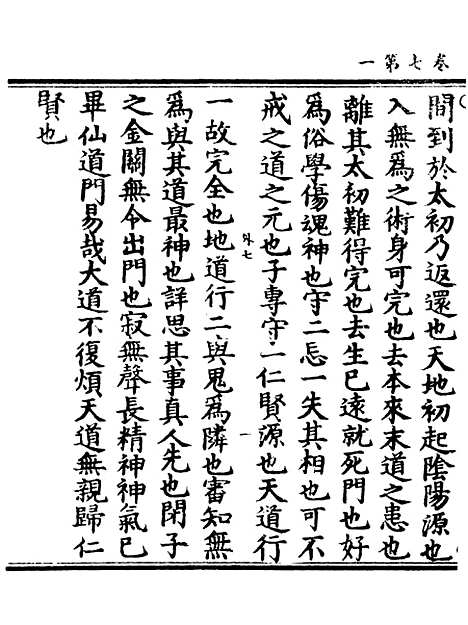 卷七第一
間到於太初乃返還也天地初起陰陽源也
入無爲之術身可完也去本來末道之患也
離其太初難得完也去生已遠就死門也好
爲俗學傷魂神也守二忘一失其相也可不
戒之道之元也子專守一仁賢源也天道行
外七
一
一故完全也地道行二與鬼爲隣也審知無
爲與其道最神也詳思其事真人先也閉子
之金關無令出門也寂無聲長精神神氣已
畢仙道門易哉大道不復煩天道無親歸仁
賢也